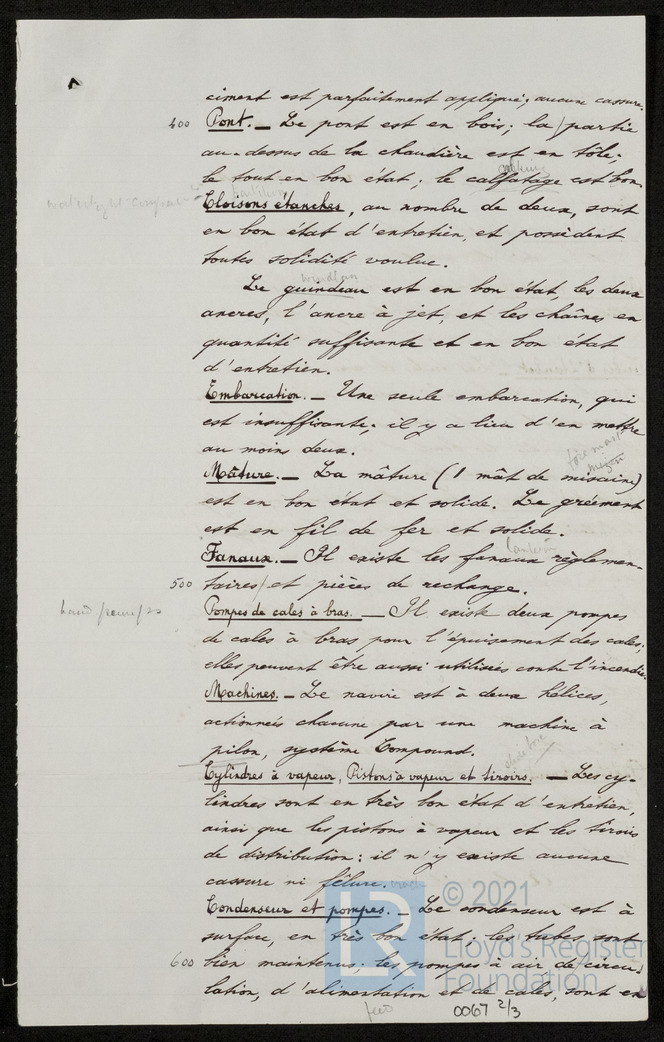 ciment est parfaitement appliqué; aucune cassure.
400 Pont. — Le pont est en bois; la/partie
au-dessus de la chaudière est en tôle;
caulking
le tout en bon état; le calfatage est bon.
watertight
Cloisons étanches, au nombre de deux, sont
en bon état d'entretien, et possèdent
toutes solidité voulue.
windlass
Le guindeau est en bon état, les deux
ancres, l'ancre à jet, et les chaînes en
quantité suffisante et en bon état
d'entretien.
Embarcation. — Une seule embarcation, qui
est insuffisante; il y a lieu d'en mettre
au moins deux.
foremast
mizen
Mâture. — La mâture (1 mât de misaine)
est en bon état et solide. Le gréement
est en fil de fer et solide.
Fanaux. — Il existe les fanaux règlemen-
500 taires/et pièces de rechange.
hand pumps
Pompes de cales à bras. — Il existe deux pompes
de cales à bras pour l'épuisement des cales;
elles peuvent être aussi utilisées contre l'incendie.
Machines. — Le navire est à deux hélices,
actionnées chacune par une machine à
pilon, système Compound.
Cylindres à vapeur, Pistons à vapeur et tiroirs. — Les cy-
lindres sont en très bon état d'entretien,
ainsi que les pistons à vapeur et les tiroirs
de distribution: il n'y existe aucune
cassure ni fêlure. crack
Condenseur et pompes. — Le condenseur est à
surface, en très bon état; les tubes sont
600 bien maintenus; les pompes à air de/circu-
lation, d'alimentation et de cales, sont en
feed
0067 2/3
© 2021
LR
Lloyd's Register
Foundation